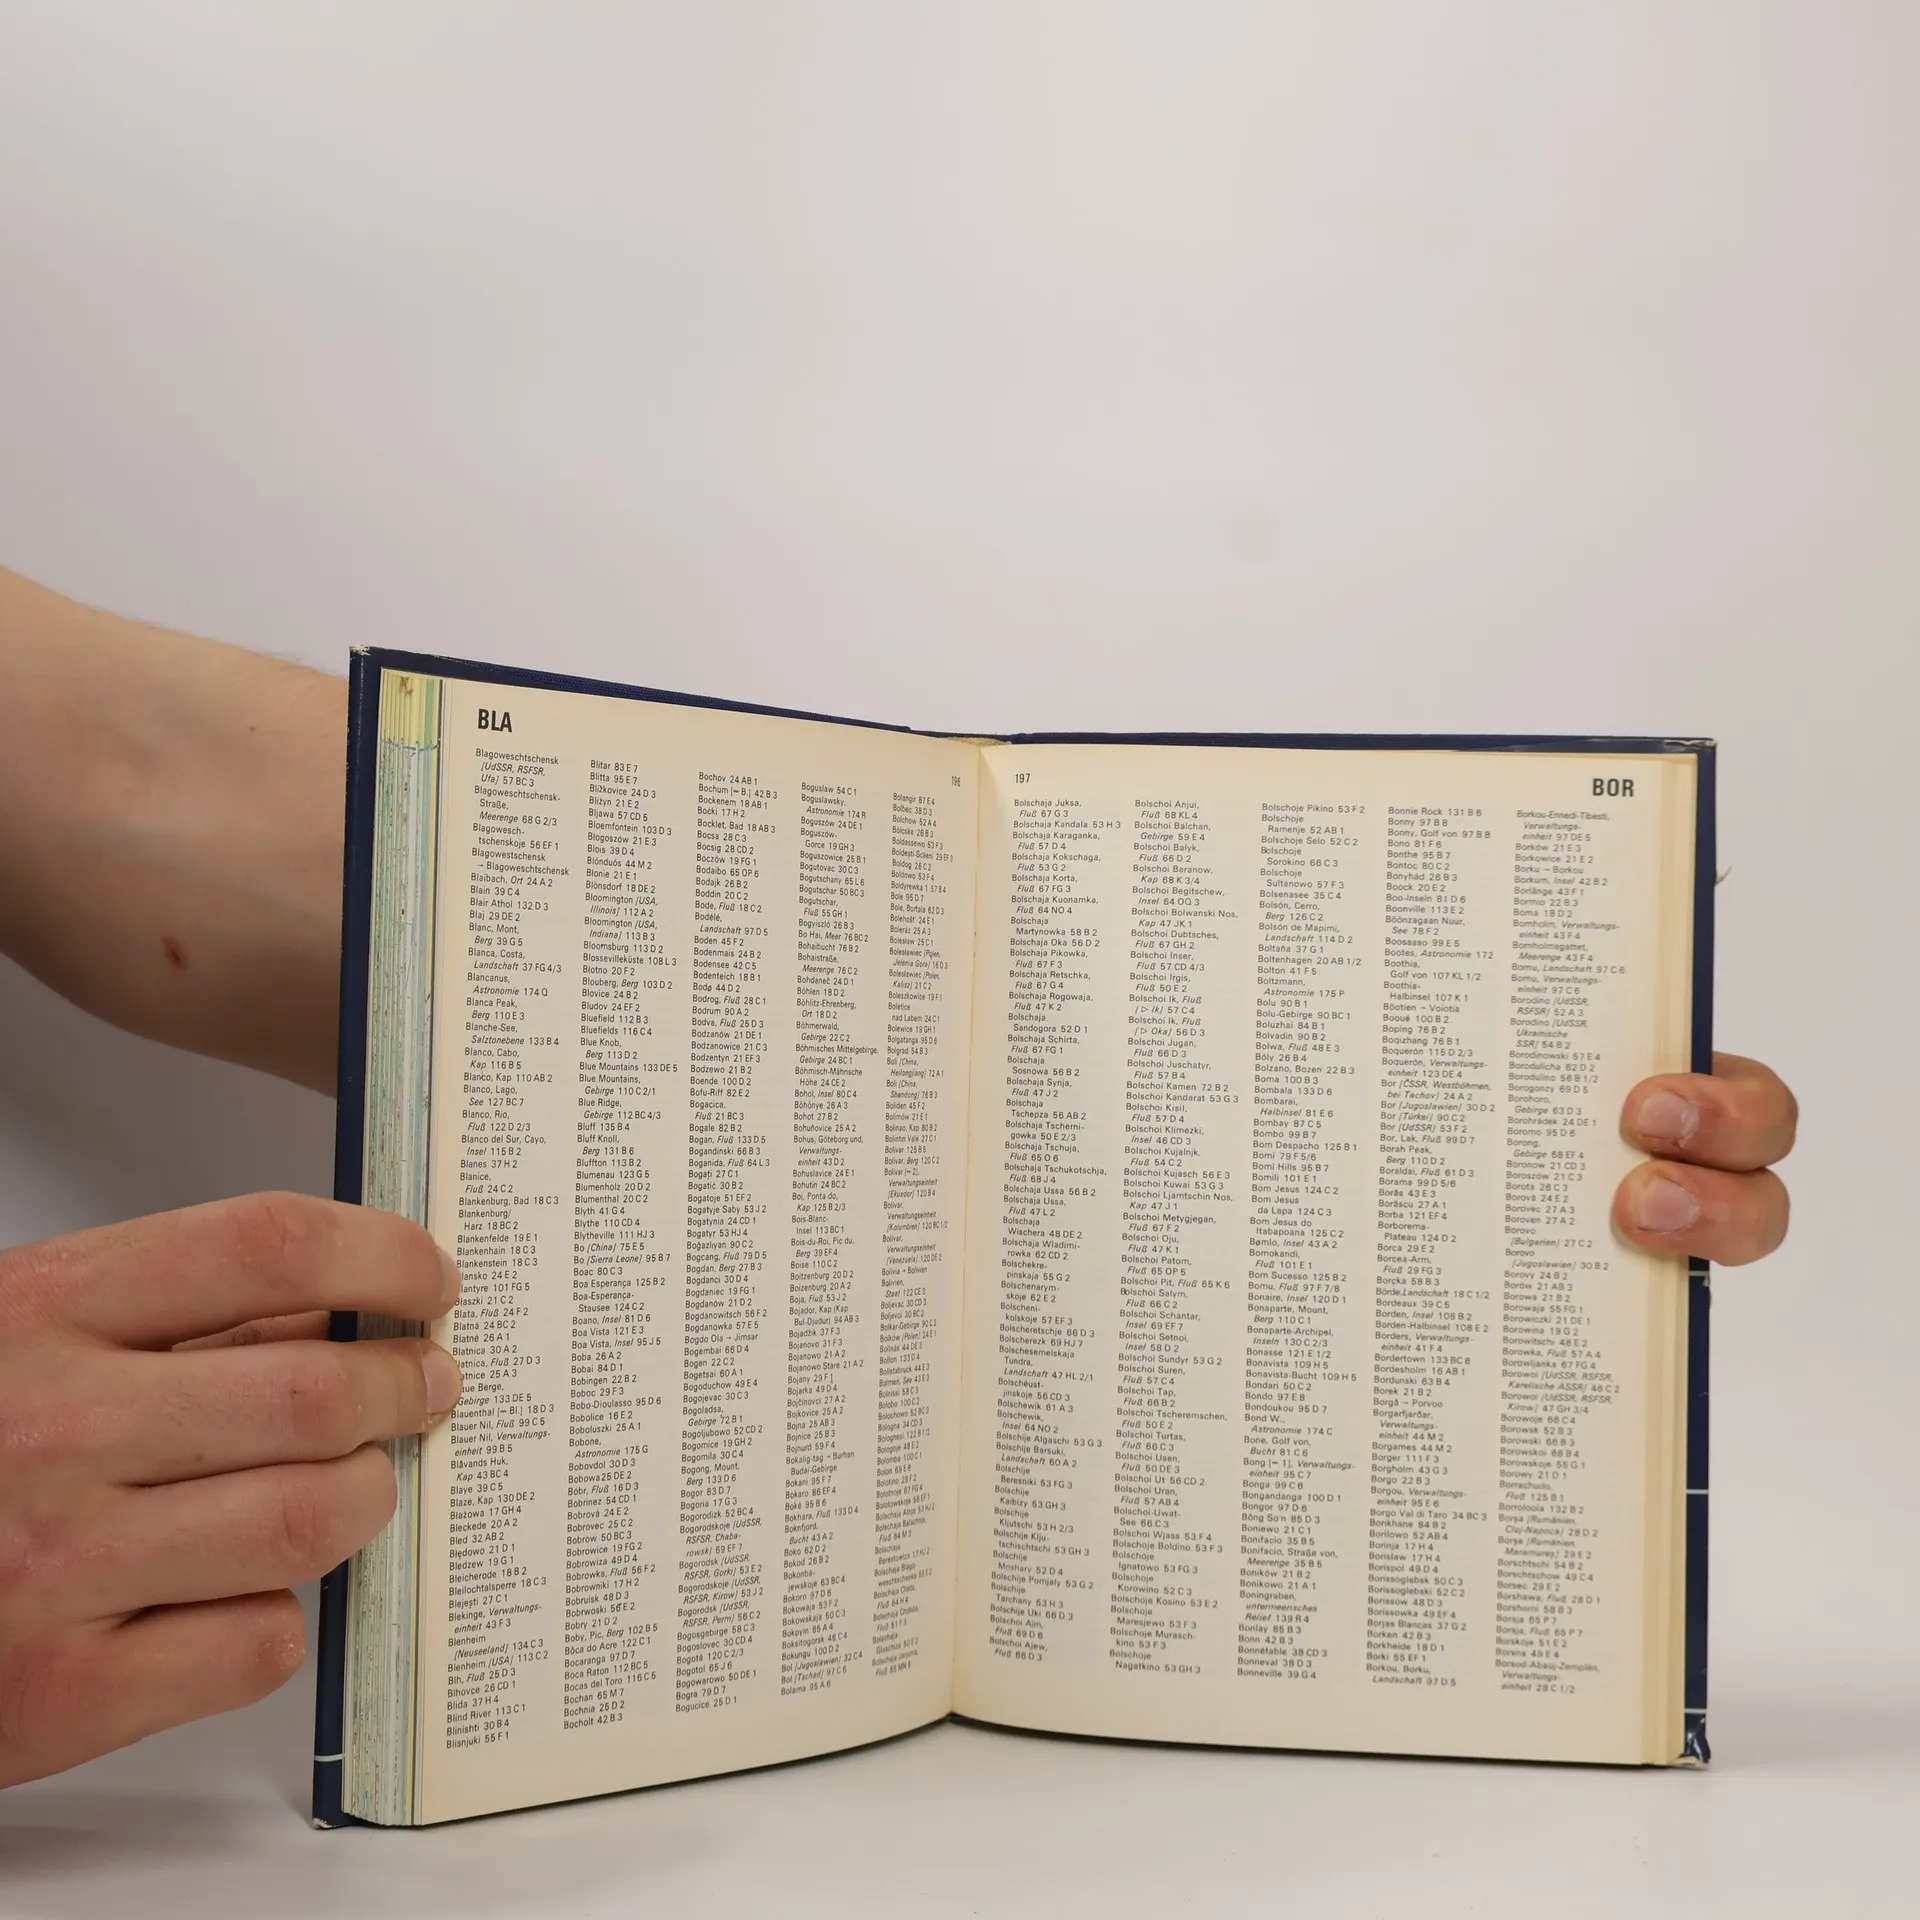 BLA
196
Blagoweschtschensk
[UdSSR, RSFSR,
Ufa] 57 BC 3
Blagoweschtschensk-
Straße,
Meerenge 68 G 2/3
Blagowesch-
tschenskoje 56 EF 1
Blagowestschensk
→ Blagoweschtschensk
Blaibach, Ort 24 A 2
Blain 39 C 4
Blair Athol 132 D 3
Blaj 29 DE 2
Blanc, Mont,
Berg 39 G 5
Blanca, Costa,
Landschaft 37 FG 4/3
Blancanus,
Astronomie 174 Q
Blanca Peak,
Berg 110 E 3
Blanche-See,
Salztonebene 133 B 4
Blanco, Cabo,
Kap 116 B 5
Blanco, Kap 110 AB 2
Blanco, Lago,
See 127 BC 7
Blanco, Rio,
Fluß 122 D 2/3
Blanco del Sur, Cayo,
Insel 115 B 2
Blanes 37 H 2
Blanice,
Fluß 24 C 2
Blankenburg, Bad 18 C 3
Blankenburg/
Harz 18 BC 2
Blankenfelde 19 E 1
Blankenhain 18 C 3
Blankenstein 18 C 3
Blata, Fluß 24 F 2
Blatná 24 BC 2
Blatné 26 A 1
Blatnica 30 A 2
Gebirge 133 DE 5
Blauenthal [– Bl.] 18 D 3
Blauer Nil, Fluß 99 C 5
Blauer Nil, Verwaltungs-
einheit 99 B 5
Blåvands Huk,
Kap 43 BC 4
Blaye 39 C 5
Blaze, Kap 130 DE 2
Błażowa 17 GH 4
Bleckede 20 A 2
Bled 32 AB 2
Błędowo 21 D 1
Bledzew 19 G 1
Bleicherode 18 B 2
Bleilochtalsperre 18 C 3
Blejești 27 C 1
Blekinge, Verwaltungs-
einheit 43 F 3
Blenheim
[Neuseeland] 134 C 3
Blenheim [USA] 113 C 2
Blh, Fluß 25 D 3
Blhovce 26 CD 1
Blida 37 H 4
Blind River 113 C 1
Blinishti 30 B 4
Blisnjuki 55 F 1
Blitar 83 E 7
Blitta 95 E 7
Blížkovice 24 D 3
Bliżyn 21 E 2
Bljawa 57 CD 5
Bloemfontein 103 D 3
Blogoszów 21 E 3
Blois 39 D 4
Blönduós 44 M 2
Blonie 21 E 1
Blönsdorf 18 DE 2
Bloomington [USA,
Illinois] 112 A 2
Bloomington [USA,
Indiana] 113 B 3
Bloomsburg 113 D 2
Blosevilleküste 108 L 3
Blotno 20 F 2
Blouberg, Berg 103 D 2
Blovice 24 B 2
Bludov 24 EF 2
Bluefield 112 B 3
Bluefields 116 C 4
Blue Knob,
Berg 113 D 2
Blue Mountains 133 DE 5
Blue Mountains,
Gebirge 110 C 2/1
Blue Ridge,
Gebirge 112 BC 4/3
Bluff 135 B 4
Bluff Knoll,
Berg 131 B 6
Bluffton 113 B 2
Blumenau 123 G 5
Blumenholz 20 D 2
Blumenthal 20 C 2
Blyth 41 G 4
Blythe 110 CD 4
Blytheville 111 HJ 3
Bo [China] 75 E 5
Bo [Sierra Leone] 95 B 7
Boac 80 C 3
Boa Esperança 125 B 2
Boa-Esperança-
Stausee 124 C 2
Boano, Insel 81 D 6
Boa Vista 121 E 3
Boa Vista, Insel 95 J 5
Boba 26 A 2
Bobai 84 D 1
Bobingen 22 B 2
Boboc 29 F 3
Bobo-Dioulasso 95 D 6
Bobolice 16 E 2
Boboluszki 25 A 1
Bobone,
Astronomie 175 G
Bobovdol 30 D 3
Bobowa 25 DE 2
Bóbr, Fluß 16 D 3
Bobrinez 54 CD 1
Bobrová 24 E 2
Bobrovec 25 C 2
Bobrow 50 BC 3
Bobrowice 19 FG 2
Bobrowiza 49 D 4
Bobrowka, Fluß 56 F 2
Bobrowniki 17 H 2
Bobruisk 48 D 3
Bobrwoski 56 E 2
Bobry 21 D 2
Boby, Pic, Berg 102 B 5
Bôca do Acre 122 C 1
Bocaranga 97 D 7
Boca Raton 112 BC 5
Bocas del Toro 116 C 5
Bochan 65 M 7
Bochnia 25 D 2
Bocholt 42 B 3
Bochov 24 AB 1
Bochum [– B.] 42 B 3
Bockenem 18 AB 1
Boćki 17 H 2
Bocklet, Bad 18 AB 3
Bocsa 28 C 3
Bocsig 28 CD 2
Boczów 19 FG 1
Bodaibo 65 OP 6
Bodajk 26 B 2
Boddin 20 C 2
Bode, Fluß 18 C 2
Bodélé,
Landschaft 97 D 5
Boden 45 F 2
Bodenmais 24 B 2
Bodensee 42 C 5
Bodenteich 18 B 1
Bodø 44 D 2
Bodrog, Fluß 28 C 1
Bodrum 90 A 2
Bodva, Fluß 25 D 3
Bodzanów 21 DE 1
Bodzanowice 21 C 3
Bodzentyn 21 EF 3
Bodzewo 21 B 2
Boende 100 D 2
Bofu-Riff 82 E 2
Bogacica,
Fluß 21 BC 3
Bogale 82 B 2
Bogan, Fluß 133 D 5
Bogandinski 66 B 3
Boganida, Fluß 64 L 3
Bogați 27 C 1
Bogatić 30 B 2
Bogatoje 51 EF 2
Bogatyje Saby 53 J 2
Bogatynia 24 CD 1
Bogatyr 53 HJ 4
Boğazlıyan 90 C 2
Bogcang, Fluß 79 D 5
Bogdan, Berg 27 B 3
Bogdanci 30 D 4
Bogdaniec 19 FG 1
Bogdanów 21 D 2
Bogdanowitsch 56 F 2
Bogdanowka 57 E 5
Bogdo Ola → Jimsar
Bogembai 66 D 4
Bogen 22 C 2
Bogetsai 60 A 1
Bogoduchow 49 E 4
Bogojevac 30 C 3
Bogoladsa,
Gebirge 72 B 1
Bogoljubowo 52 CD 2
Bogomice 19 GH 2
Bogomila 30 C 4
Bogong, Mount,
Berg 133 D 6
Bogor 83 D 7
Bogoria 17 G 3
Bogorodizk 52 BC 4
Bogorodskoje [UdSSR,
RSFSR, Chaba-
rowsk] 69 EF 7
Bogorodsk [UdSSR,
RSFSR, Gorki] 53 E 2
Bogorodskoje [UdSSR,
RSFSR, Kirow] 53 J 2
Bogorodsk [UdSSR,
RSFSR, Perm] 56 C 2
Bogosgebirge 58 C 3
Bogoslovec 30 CD 4
Bogotá 120 C 2/3
Bogotol 65 J 6
Bogowarowo 50 DE 1
Bogra 79 D 7
Bogucice 25 D 1
Boguslaw 54 C 1
Boguslawsky,
Astronomie 174 R
Boguszów 24 DE 1
Boguszów-
Gorce 19 GH 3
Boguszowice 25 B 1
Bogutovac 30 C 3
Bogutschany 65 L 6
Bogutschar 50 BC 3
Bogutschar,
Fluß 55 GH 1
Bogyiszló 26 B 3
Bo Hai, Meer 76 BC 2
Bohaibucht 76 B 2
Bohaistraße,
Meerenge 76 C 2
Bohdaneč 24 D 1
Böhlen 18 D 2
Böhlitz-Ehrenberg,
Ort 18 D 2
Böhmerwald,
Gebirge 22 C 2
Böhmisches Mittelgebirge,
Gebirge 24 BC 1
Böhmisch-Mährische
Höhe 24 CE 2
Bohol, Insel 80 C 4
Böhönye 26 A 3
Bohot 27 B 2
Bohuňovice 25 A 2
Bohus, Göteborg und,
Verwaltungs-
einheit 43 D 2
Bohuslavice 24 E 1
Bohutín 24 BC 2
Boi, Ponta do,
Kap 125 B 2/3
Bois-Blanc-
Insel 113 BC 1
Bois-du-Roi, Pic du,
Berg 39 EF 4
Boise 110 C 2
Boitzenburg 20 D 2
Boizenburg 20 A 2
Boja, Fluß 53 J 2
Bojador, Kap (Kap
Bul-Djudur) 94 AB 3
Bojadžik 37 F 3
Bojanovo 31 F 3
Bojanowo 21 A 2
Bojanowo Stare 21 A 2
Bojany 29 F 1
Bojarka 49 D 4
Bojčinovci 27 A 2
Bojkovice 25 A 2
Bojna 25 AB 3
Bojnice 25 B 3
Bojnurd 59 F 4
Bokalig-tag → Burhan
Budai-Gebirge
Bokani 95 F 7
Bokaro 86 EF 4
Boké 95 B 6
Bokhara, Fluß 133 D 4
Boknfjord,
Bucht 43 A 2
Boko 62 D 2
Bokod 26 B 2
Bokonba-
jewskoje 63 BC 4
Bokoro 97 D 6
Bokowaja 53 F 2
Bokowskaja 50 C 3
Bokpyin 85 A 4
Boksitogorsk 46 C 4
Bokungu 100 D 2
Bol [Jugoslawien] 32 C 4
Bol [Tschad] 97 C 6
Bolama 95 A 6
Bolangir 87 E 4
Bolbec 38 D 3
Bolchow 52 A 4
Bölcske 26 B 3
Boldog 26 C 2
Boldowo 53 F 4
Bole 95 D 7
Boleráz 25 A 3
Bolesław 25 C 1
Bolesławiec [Polen,
Jelenia Góra] 16 D 3
Bolesławiec [Polen,
Kalisz] 21 C 2
Boleszkowice 19 F 1
Boletice
nad Labem 24 C 1
Bolewice 19 GH 1
Bolgatanga 95 D 6
Bolgrad 54 B 3
Boli [China,
Heilongjiang] 72 A 1
Boli [China,
Shandong] 76 B 3
Boliden 45 F 2
Bolimów 21 E 1
Bolinao, Kap 80 B 2
Bolintin Vale 27 C 1
Bolívar 125 B 5
Bolívar, Berg 120 C 2
Bolívar [– 2],
Verwaltungseinheit
[Ekuador] 120 B 4
Bolívar,
Verwaltungseinheit
[Kolumbien] 120 BC 1/2
Bolívar,
Verwaltungseinheit
[Venezuela] 120 DE 2
Bolivia → Bolivien
Bolivien,
Staat 122 CE 3
197
BOR
Bolschaja Juksa,
Fluß 67 G 3
Bolschaja Kandala 53 H 3
Bolschaja Karaganka,
Fluß 57 D 4
Bolschaja Kokschaga,
Fluß 53 G 2
Bolschaja Korta,
Fluß 67 FG 3
Bolschaja Kuonamka,
Fluß 64 NO 4
Bolschaja
Martynowka 58 B 2
Bolschaja Oka 56 D 2
Bolschaja Pikowka,
Fluß 67 F 3
Bolschaja Retschka,
Fluß 67 G 4
Bolschaja Rogowaja,
Fluß 47 K 2
Bolschaja
Sandogora 52 D 1
Bolschaja Schirta,
Fluß 67 FG 1
Bolschaja
Sosnowa 56 B 2
Bolschaja Synja,
Fluß 47 J 2
Bolschaja
Tschepza 56 AB 2
Bolschaja Tscherni-
gowka 50 E 2/3
Bolschaja Tschuja,
Fluß 65 O 6
Bolschaja Tschukotschja,
Fluß 68 J 4
Bolschaja Ussa 56 B 2
Bolschaja Ussa,
Fluß 47 L 2
Bolschaja
Wischera 48 DE 2
Bolschaja Wladimi-
rowka 62 CD 2
Bolschekre-
pinskaja 55 G 2
Bolschenarym-
skoje 62 E 2
Bolscheni-
kolskoje 57 EF 3
Bolscheretschje 66 D 3
Bolscherezk 69 HJ 7
Bolschesemelskaja
Tundra,
Landschaft 47 HL 2/1
Bolscheust-
jinskoje 56 CD 3
Bolschewik 61 A 3
Bolschewik,
Insel 64 NO 2
Bolschije Algaschi 53 G 3
Bolschije Barsuki,
Landschaft 60 A 2
Bolschije
Beresniki 53 FG 3
Bolschije
Kaibizy 53 GH 3
Bolschije
Kljutschi 53 H 2/3
Bolschije Klju-
tschischtschi 53 GH 3
Bolschije
Moshary 52 D 4
Bolschije Pomjaly 53 G 2
Bolschije
Tarchany 53 H 3
Bolschije Uki 66 D 3
Bolschoi Aim,
Fluß 69 D 6
Bolschoi Ajew,
Fluß 66 D 3
Bolschoi Anjui,
Fluß 68 KL 4
Bolschoi Balchan,
Gebirge 59 E 4
Bolschoi Balyk,
Fluß 66 D 2
Bolschoi Baranow,
Kap 68 K 3/4
Bolschoi Begitschew,
Insel 64 OQ 3
Bolschoi Bolwanski Nos,
Kap 47 JK 1
Bolschoi Dubtsches,
Fluß 67 GH 2
Bolschoi Inser,
Fluß 57 CD 4/3
Bolschoi Irgis,
Fluß 50 E 2
Bolschoi Ik, Fluß
[▷ Ik] 57 C 4
Bolschoi Ik, Fluß
[▷ Oka] 56 D 3
Bolschoi Jugan,
Fluß 66 D 3
Bolschoi Juschatyr,
Fluß 57 B 4
Bolschoi Kamen 72 B 2
Bolschoi Kandarat 53 G 3
Bolschoi Kisil,
Fluß 57 D 4
Bolschoi Klimezki,
Insel 46 CD 3
Bolschoi Kujalnjk,
Fluß 54 C 2
Bolschoi Kujasch 56 E 3
Bolschoi Kuwai 53 G 3
Bolschoi Ljamtschin Nos,
Kap 47 J 1
Bolschoi Metygjegan,
Fluß 67 F 2
Bolschoi Oju,
Fluß 47 K 1
Bolschoi Patom,
Fluß 65 OP 5
Bolschoi Pit, Fluß 65 K 6
Bolschoi Salym,
Fluß 66 C 2
Bolschoi Schantar,
Insel 69 EF 7
Bolschoi Setnoi,
Insel 58 D 2
Bolschoi Sundyr 53 G 2
Bolschoi Suren,
Fluß 57 C 4
Bolschoi Tap,
Fluß 66 B 2
Bolschoi Tscheremschen,
Fluß 50 E 2
Bolschoi Turtas,
Fluß 66 C 3
Bolschoi Usen,
Fluß 50 DE 3
Bolschoi Ut 56 CD 2
Bolschoi Uran,
Fluß 57 AB 4
Bolschoi-Uwat-
See 66 C 3
Bolschoi Wjass 53 F 4
Bolschoje Boldino 53 F 3
Bolschoje
Ignatowo 53 FG 3
Bolschoje
Korowino 52 C 3
Bolschoje Kosino 53 E 2
Bolschoje
Maresjewo 53 F 3
Bolschoje Murasch-
kino 53 F 3
Bolschoje
Nagatkino 53 GH 3
Bolschoje Pikino 53 F 2
Bolschoje
Ramenje 52 AB 1
Bolschoje Selo 52 C 2
Bolschoje
Sorokino 66 C 3
Bolschoje
Sultanowo 57 F 3
Bolsenasee 35 C 4
Bolsón, Cerro,
Berg 126 C 2
Bolsón de Mapimi,
Landschaft 114 D 2
Boltaña 37 G 1
Boltenhagen 20 AB 1/2
Bolton 41 F 5
Boltzmann,
Astronomie 175 P
Bolu 90 B 1
Bolu-Gebirge 90 BC 1
Boluzhai 84 B 1
Bolvadin 90 B 2
Bolwa, Fluß 48 E 3
Bóly 26 B 4
Bolzano, Bozen 22 B 3
Boma 100 B 3
Bombala 133 D 6
Bombarai,
Halbinsel 81 E 6
Bombay 87 C 5
Bombo 99 B 7
Bom Despacho 125 B 1
Bomi 79 F 5/6
Bomi Hills 95 B 7
Bomili 101 E 1
Bom Jesus 124 C 2
Bom Jesus
da Lapa 124 C 3
Bom Jesus do
Itabapoana 125 C 2
Bømlo, Insel 43 A 2
Bomokandi,
Fluß 101 E 1
Bom Sucesso 125 B 2
Bomu, Fluß 97 F 7/8
Bonaire, Insel 120 D 1
Bonaparte, Mount,
Berg 110 C 1
Bonaparte-Archipel,
Inseln 130 C 2/3
Bonasse 121 E 1/2
Bonavista 109 H 5
Bonavista-Bucht 109 H 5
Bondari 50 C 2
Bondo 97 E 8
Bondoukou 95 D 7
Bond W.,
Astronomie 174 C
Bone, Golf von,
Bucht 81 C 6
Bong [– 1], Verwaltungs-
einheit 95 C 7
Bonga 99 C 6
Bongandanga 100 D 1
Bongor 97 D 6
Bông So'n 85 D 3
Boniewo 21 C 1
Bonifacio 35 B 5
Bonifacio, Straße von,
Meerenge 35 B 5
Boników 21 B 2
Bonikowo 21 A 1
Boningraben,
untermeerisches
Relief 139 R 4
Bonlay 85 B 3
Bonn 42 B 3
Bonnétable 38 CD 3
Bonneval 38 D 3
Bonneville 39 G 4
Bonnie Rock 131 B 6
Bonny 97 B 8
Bonny, Golf von 97 B 8
Bono 81 F 6
Bonthe 95 B 7
Bontoc 80 C 2
Bonyhád 26 B 3
Boock 20 E 2
Boo-Inseln 81 D 6
Boonville 113 E 2
Böönzagaan Nuur,
See 78 F 2
Boosaaso 99 E 5
Bootes, Astronomie 172
Boothia,
Golf von 107 KL 1/2
Boothia-
Halbinsel 107 K 1
Böotien → Voiotia
Booué 100 B 2
Boping 76 B 2
Boqizhang 76 B 1
Boquerón 115 D 2/3
Boquerón, Verwaltungs-
einheit 123 DE 4
Bor [ČSSR, Westböhmen,
bei Tachov] 24 A 2
Bor [Jugoslawien] 30 D 2
Bor [Türkei] 90 C 2
Bor [UdSSR] 53 F 2
Bor, Lak, Fluß 99 D 7
Borah Peak,
Berg 110 D 2
Boraldai, Fluß 61 D 3
Borama 99 D 5/6
Borås 43 E 3
Borăscu 27 A 1
Borba 121 EF 4
Borborema-
Plateau 124 D 2
Borca 29 E 2
Borcea-Arm,
Fluß 29 FG 3
Borçka 58 B 3
Börde, Landschaft 18 C 1/2
Bordeaux 39 C 5
Borden, Insel 108 B 2
Borden-Halbinsel 108 E 2
Borders, Verwaltungs-
einheit 41 F 4
Bordertown 133 BC 6
Bordesholm 16 AB 1
Bordunski 63 B 4
Borek 21 B 2
Borgå → Porvoo
Borgarfjarðar,
Verwaltungs-
einheit 44 M 2
Borgarnes 44 M 2
Borger 111 F 3
Borgholm 43 G 3
Borgo 22 B 3
Borgou, Verwaltungs-
einheit 95 E 6
Borgo Val di Taro 34 BC 3
Borikhane 84 B 2
Borilowo 52 AB 4
Borinja 17 H 4
Borislaw 17 H 4
Borispol 49 D 4
Borissoglebsk 50 C 3
Borissoglebski 52 C 2
Borissow 48 D 3
Borissowka 49 EF 4
Borjas Blancas 37 G 2
Borken 42 B 3
Borkheide 18 D 1
Borki 55 EF 1
Borkou, Borku,
Landschaft 97 D 5
Borkou-Ennedi-Tibesti,
Verwaltungs-
einheit 97 DE 5
Borków 21 E 3
Borkowice 21 E 2
Borku → Borkou
Borkum, Insel 42 B 2
Borlänge 43 F 1
Bormio 22 B 3
Borna 18 D 2
Bornholm, Verwaltungs-
einheit 43 F 4
Bornholmsgattet,
Meerenge 43 F 4
Bornu, Landschaft 97 C 6
Bornu, Verwaltungs-
einheit 97 C 6
Borodino [UdSSR,
RSFSR] 52 A 3
Borodino [UdSSR,
Ukrainische
SSR] 54 B 2
Borodinowski 57 E 4
Borodulicha 62 D 2
Borodulino 56 B 1/2
Borogonzy 69 D 5
Borohoro,
Gebirge 63 D 3
Borohrádek 24 DE 1
Boromo 95 D 6
Borong,
Gebirge 68 EF 4
Boronow 21 CD 3
Boroszów 21 C 3
Borota 26 C 3
Borová 24 E 2
Borovec 27 A 3
Borovan 27 A 2
Borovo
[Bulgarien] 27 C 2
Borovo
[Jugoslawien] 30 B 2
Borovy 24 B 2
Borów 21 AB 3
Borowa 21 B 2
Borowaja 55 FG 1
Borowiczki 21 DE 1
Borowina 19 G 2
Borowitschi 48 E 2
Borowka, Fluß 57 A 4
Borowljanka 67 FG 4
Borowoi [UdSSR, RSFSR,
Karelische ASSR] 46 C 2
Borowoi [UdSSR, RSFSR,
Kirow] 47 GH 3/4
Borowoje 66 C 4
Borowsk 52 B 3
Borowski 66 B 3
Borowskoi 66 B 4
Borowskoje 55 G 1
Borowy 21 D 1
Borrachudo,
Fluß 125 B 1
Borroloola 132 B 2
Borșa [Rumänien,
Cluj-Napoca] 28 D 2
Borșa [Rumänien,
Maramureș] 29 E 2
Borschtschi 54 B 2
Borschtschow 49 C 4
Borsec 29 E 2
Borshawa, Fluß 28 D 1
Borshomi 58 B 3
Borsja 65 P 7
Borsja, Fluß 65 P 7
Borskoje 51 E 2
Borsna 49 E 4
Borsod-Abaúj-Zemplén,
Verwaltungs-
einheit 28 C 1/2